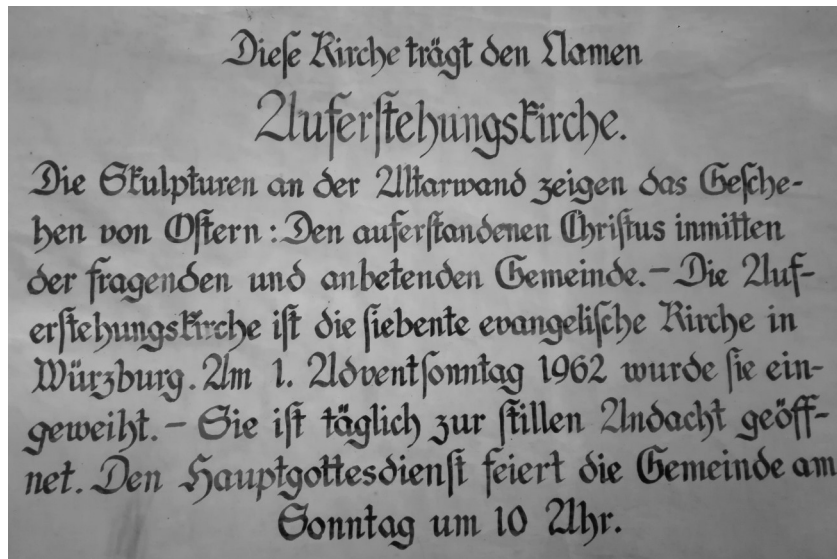 Dieſe Kirche trägt den Namen
Auferſtehungskirche.
Die Skulpturen an der Altarwand zeigen das Geſche-
hen von Oſtern: Den auferſtandenen Chriſtus inmitten
der fragenden und anbetenden Gemeinde. – Die Auf-
erſtehungskirche iſt die ſiebente evangeliſche Kirche in
Würzburg. Am 1. Adventſonntag 1962 wurde ſie ein-
geweiht. – Sie iſt täglich zur ſtillen Andacht geöff-
net. Den Hauptgottesdienſt feiert die Gemeinde am
Sonntag um 10 Uhr.